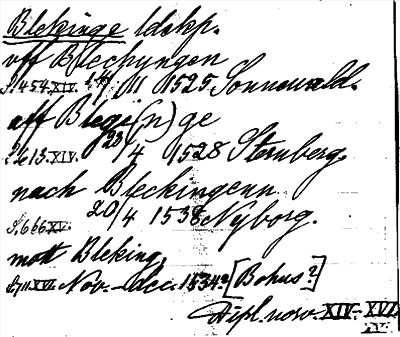 Blekinge ldskp.
uff Blechyngen
S. 454. XIV. 11 1525 Sonnewald.
aff Blegi(n)ge
S. 613. XIV. 23/4 1528 Sternberg.
nach Bleckingenn
S. 666 XV. 20/4 1538 Nyborg.
mott Bleking,
XVI. Nov.-dec. 1534? [Bohus?]
Dipl. norv. XIV-XVI.
XV.